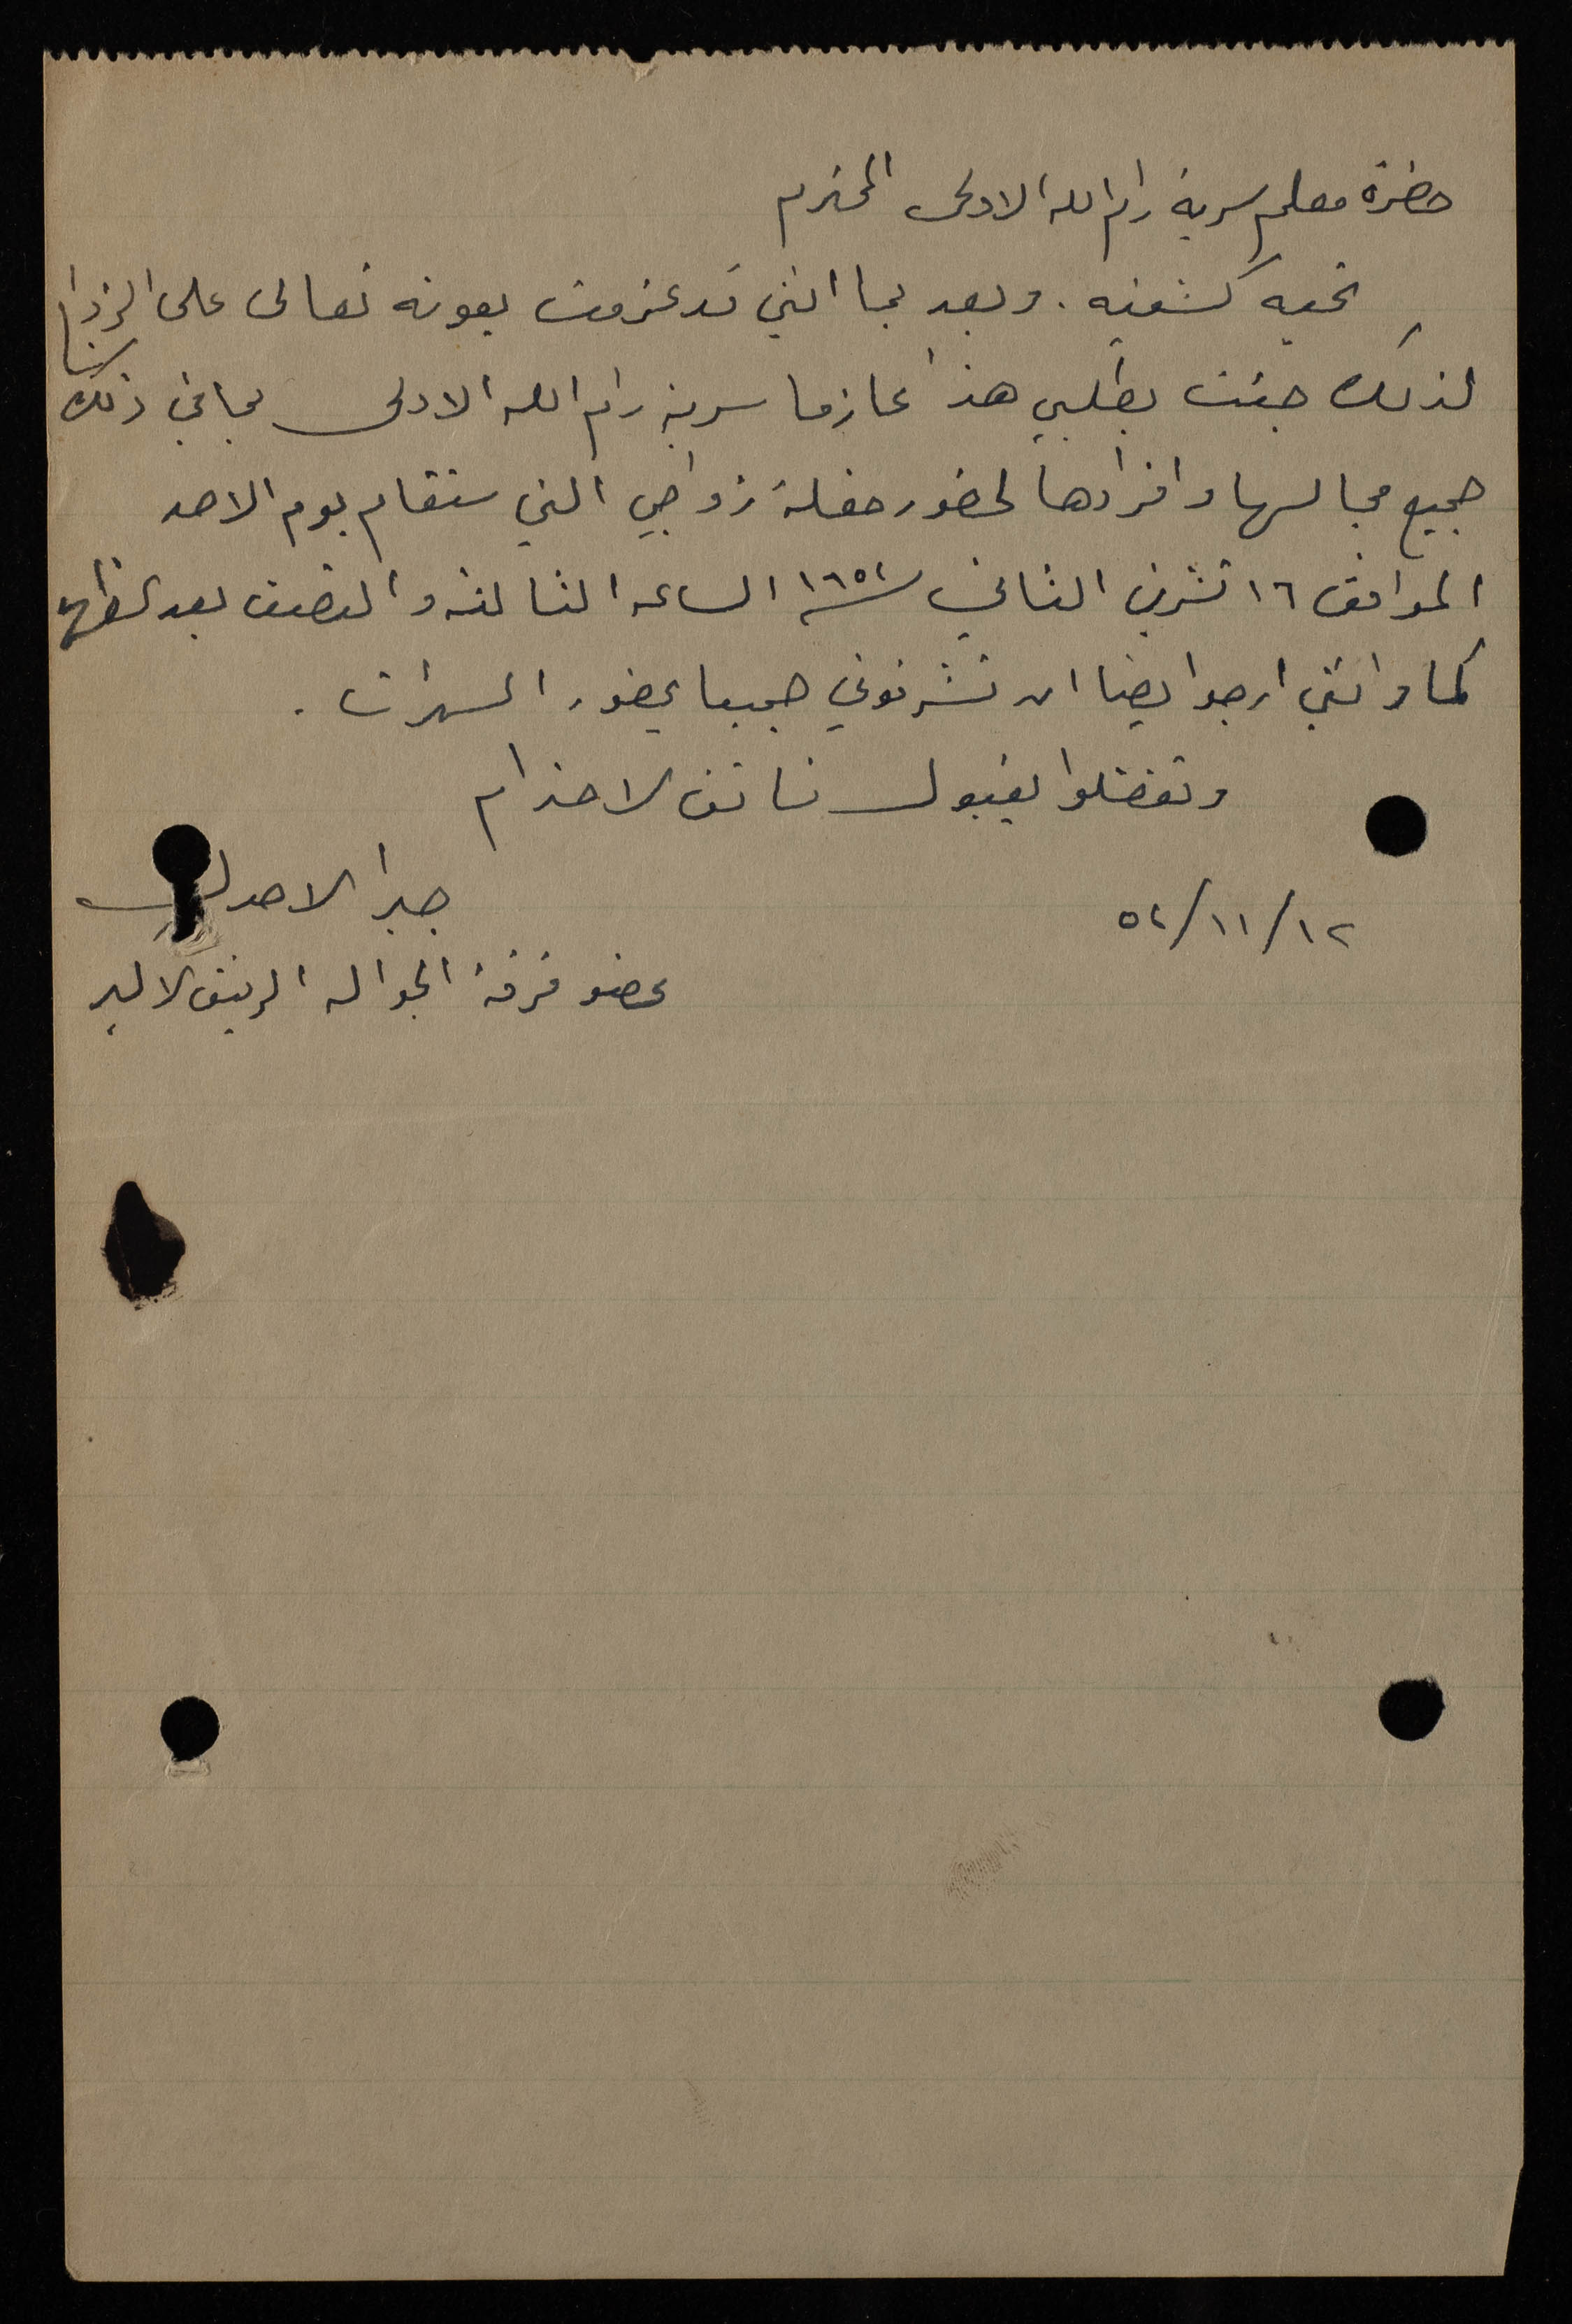 حضرة معلم سرية رام الله الاولى المحترم
تحيه كشفيه . وبعد بما انني قد عزمت بعونه تعالى على الزواج
لذلك جئت بطلبي هذا عازما سرية رام الله الاولى بما في ذلك
جميع مجالسها وافرادها لحضور حفلة زواجي التي ستقام يوم الاحد
الموافق ١٦ تشرين الثاني سنة ١٩٥٢ الساعه الثالثه والنصف بعد الظهر
كما وانني ارجو ايضا ان تشرفوني جميعا بحضور السهرات .
وتفضلوا بقبول فائق الاحترام
١٢/١١/٥٢
جبرا الاحدل
عضو فرقة الجواله الرفيق الاكبر